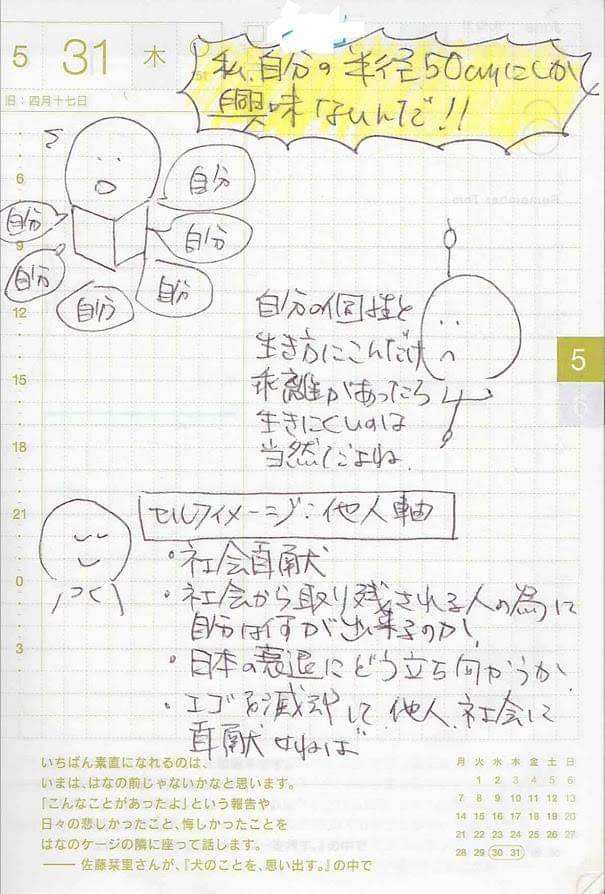 5 31 木
151
旧：四月十七日
私、自分の半径50cmにしか
興味ないんだ!!
自分
自分
自分
自分
自分
自分
6
9
12
15
18
21
0
3
自分の個性と
生き方にこんだけ
乖離があったら
生きにくいのは
当然だよね.
5
6
セルフイメージ：他人軸
・社会貢献
・社会から取り残される人の為に
自分は何が出来るのか
・日本の衰退にどう立ち向かうか
・エゴを滅却して他人、社会に
貢献せねば
いちばん素直になれるのは、
いまは、はなの前じゃないかなと思います。
「こんなことがあったよ」という報告や
日々の悲しかったこと、悔しかったことを
はなのケージの隣に座って話します。
―― 佐藤栞里さんが、『犬のことを、思い出す。』の中で
月 火 水 木 金 土 日
1 2 3 4 5 6
7 8 9 10 11 12 13
14 15 16 17 18 19 20
21 22 23 24 25 26 27
28 29 30 31